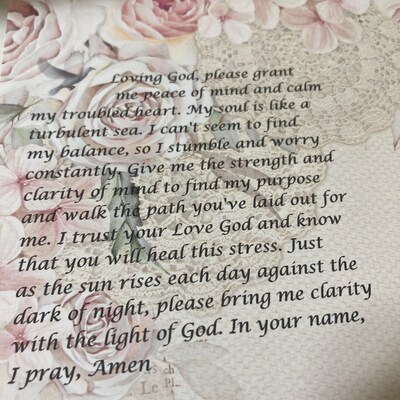 Loving God, please grant
me peace of mind and calm
my troubled heart. My soul is like a
turbulent sea. I can't seem to find
my balance, so I stumble and worry
constantly. Give me the strength and
clarity of mind to find my purpose
and walk the path you've laid out for
me. I trust your Love God and know
that you will heal this stress. Just
as the sun rises each day against the
dark of night, please bring me clarity
with the light of God. In your name,
I pray, Amen